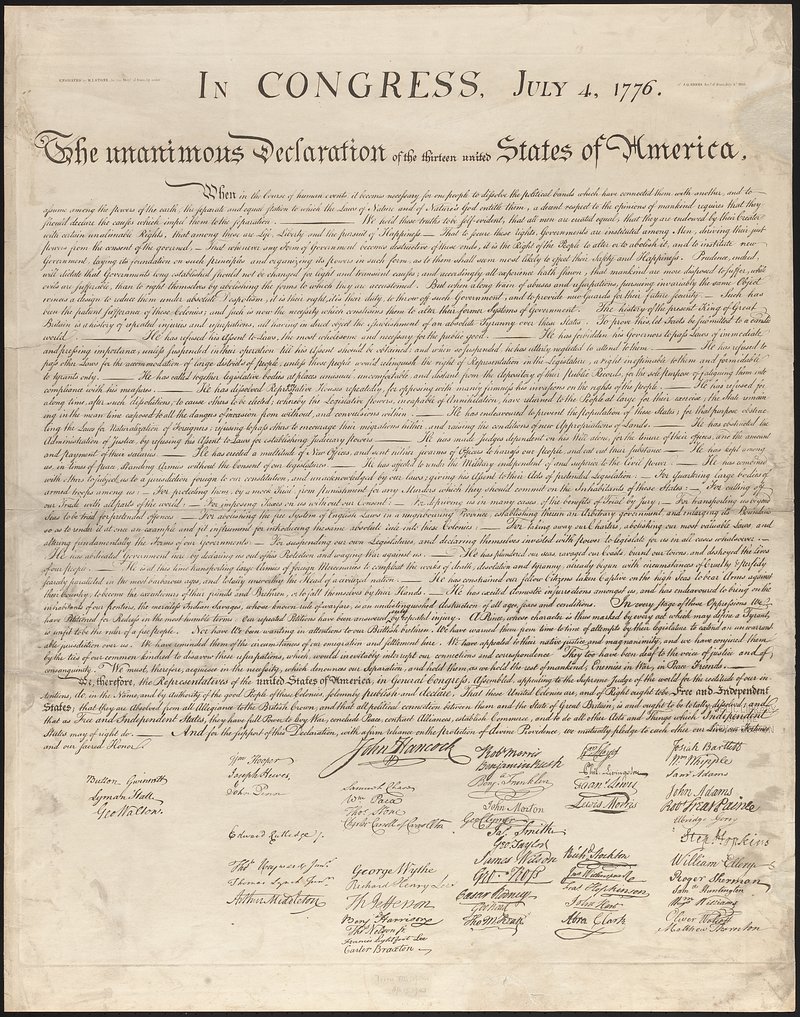 ENGRAVED by W.I. STONE, for the Dept. of State, by order
of J.Q. ADAMS, Sec. of State, July 4th 1823.
In CONGRESS, July 4, 1776.
The unanimous Declaration of the thirteen united States of America,
When in the Course of human events, it becomes necessary for one people to dissolve the political bands which have connected them with another, and to
assume among the powers of the earth, the separate and equal station to which the Laws of Nature and of Nature's God entitle them, a decent respect to the opinions of mankind requires that they
should declare the causes which impel them to the separation. — We hold these truths to be self-evident, that all men are created equal, that they are endowed by their Creator
with certain unalienable Rights, that among these are Life, Liberty and the pursuit of Happiness.— That to secure these rights, Governments are instituted among Men, deriving their just
powers from the consent of the governed,— That whenever any Form of Government becomes destructive of these ends, it is the Right of the People to alter or to abolish it, and to institute new
Government, laying its foundation on such principles and organizing its powers in such form, as to them shall seem most likely to effect their Safety and Happiness. Prudence, indeed,
will dictate that Governments long established should not be changed for light and transient causes; and accordingly all experience hath shewn, that mankind are more disposed to suffer, while
evils are sufferable, than to right themselves by abolishing the forms to which they are accustomed. But when a long train of abuses and usurpations, pursuing invariably the same Object
evinces a design to reduce them under absolute Despotism, it is their right, it is their duty, to throw off such Government, and to provide new Guards for their future security.— Such has
been the patient sufferance of these Colonies; and such is now the necessity which constrains them to alter their former Systems of Government. The history of the present King of Great
Britain is a history of repeated injuries and usurpations, all having in direct object the establishment of an absolute Tyranny over these States. To prove this, let Facts be submitted to a candid
world. — He has refused his Assent to Laws, the most wholesome and necessary for the public good. — He has forbidden his Governors to pass Laws of immediate
and pressing importance, unless suspended in their operation till his Assent should be obtained; and when so suspended, he has utterly neglected to attend to them. — He has refused to
pass other Laws for the accommodation of large districts of people, unless those people would relinquish the right of Representation in the Legislature, a right inestimable to them and formidable
to tyrants only. — He has called together legislative bodies at places unusual, uncomfortable, and distant from the depository of their Public Records, for the sole purpose of fatiguing them into
compliance with his measures. — He has dissolved Representative Houses repeatedly, for opposing with manly firmness his invasions on the rights of the people. — He has refused for
a long time, after such dissolutions, to cause others to be elected; whereby the Legislative powers, incapable of Annihilation, have returned to the People at large for their exercise; the State remain-
ing in the mean time exposed to all the dangers of invasion from without, and convulsions within. — He has endeavoured to prevent the population of these States; for that purpose obstruc-
ting the Laws for Naturalization of Foreigners; refusing to pass others to encourage their migrations hither, and raising the conditions of new Appropriations of Lands. — He has obstructed the
Administration of Justice, by refusing his Assent to Laws for establishing Judiciary powers. — He has made Judges dependent on his Will alone, for the tenure of their offices, and the amount
and payment of their salaries. — He has erected a multitude of New Offices, and sent hither swarms of Officers to harrass our people, and eat out their substance. — He has kept among
us, in times of peace, Standing Armies without the Consent of our legislatures. — He has affected to render the Military independent of and superior to the Civil power. — He has combined
with others to subject us to a jurisdiction foreign to our constitution, and unacknowledged by our laws; giving his Assent to their Acts of pretended Legislation:— For Quartering large bodies of
armed troops among us:— For protecting them, by a mock Trial, from punishment for any Murders which they should commit on the Inhabitants of these States:— For cutting off
our Trade with all parts of the world:— For imposing Taxes on us without our Consent:— For depriving us in many cases, of the benefits of Trial by Jury:— For transporting us beyond
Seas to be tried for pretended offences:— For abolishing the free System of English Laws in a neighbouring Province, establishing therein an Arbitrary government, and enlarging its Boundaries
so as to render it at once an example and fit instrument for introducing the same absolute rule into these Colonies:— For taking away our Charters, abolishing our most valuable Laws, and
altering fundamentally the Forms of our Governments:— For suspending our own Legislatures, and declaring themselves invested with power to legislate for us in all cases whatsoever.—
He has abdicated Government here, by declaring us out of his Protection and waging War against us.— He has plundered our seas, ravaged our Coasts, burnt our towns, and destroyed the lives
of our people.— He is at this time transporting large Armies of foreign Mercenaries to compleat the works of death, desolation and tyranny, already begun with circumstances of Cruelty & perfidy
scarcely paralleled in the most barbarous ages, and totally unworthy the Head of a civilized nation.— He has constrained our fellow Citizens taken Captive on the high Seas to bear Arms against
their Country, to become the executioners of their friends and Brethren, or to fall themselves by their Hands.— He has excited domestic insurrections amongst us, and has endeavoured to bring on the
inhabitants of our frontiers, the merciless Indian Savages, whose known rule of warfare, is an undistinguished destruction of all ages, sexes and conditions. In every stage of these Oppressions We
have Petitioned for Redress in the most humble terms: Our repeated Petitions have been answered only by repeated injury. A Prince, whose character is thus marked by every act which may define a Tyrant,
is unfit to be the ruler of a free people. Nor have We been wanting in attentions to our Brittish brethren. We have warned them from time to time of attempts by their legislature to extend an unwarrant-
able jurisdiction over us. We have reminded them of the circumstances of our emigration and settlement here. We have appealed to their native justice and magnanimity, and we have conjured them
by the ties of our common kindred to disavow these usurpations, which, would inevitably interrupt our connections and correspondence. They too have been deaf to the voice of justice and of
consanguinity. We must, therefore, acquiesce in the necessity, which denounces our Separation, and hold them, as we hold the rest of mankind, Enemies in War, in Peace Friends.—
We, therefore, the Representatives of the united States of America, in General Congress, Assembled, appealing to the Supreme Judge of the world for the rectitude of our in-
tentions, do, in the Name, and by Authority of the good People of these Colonies, solemnly publish and declare, That these United Colonies are, and of Right ought to be Free and Independent
States; that they are Absolved from all Allegiance to the British Crown, and that all political connection between them and the State of Great Britain, is and ought to be totally dissolved; and
that as Free and Independent States, they have full Power to levy War, conclude Peace, contract Alliances, establish Commerce, and to do all other Acts and Things which Independent
States may of right do.— And for the support of this Declaration, with a firm reliance on the protection of divine Providence, we mutually pledge to each other our Lives, our Fortunes
and our sacred Honor.
Button Gwinnett
Lyman Hall
Geo Walton.
Wm Hooper
Joseph Hewes,
John Penn
Edward Rutledge /.
Thos Heyward Junr.
Thomas Lynch Junr.
Arthur Middleton
John Hancock
Samuel Chase
Wm Paca
Thos Stone
Charles Carroll of Carrollton
George Wythe
Richard Henry Lee
Th Jefferson
Benj Harrison
Thos Nelson jr.
Francis Lightfoot Lee
Carter Braxton
Robt Morris
Benjamin Rush
Benj. Franklin
John Morton
Geo Clymer
Jas. Smith
Geo. Taylor
James Wilson
Geo. Ross
Caesar Rodney
Geo Read
Tho M:Kean
Wm Floyd
Phil. Livingston
Frans. Lewis
Lewis Morris
Richd. Stockton
Jno Witherspoon
Fras. Hopkinson
John Hart
Abra Clark
Josiah Bartlett
Wm Whipple
Saml Adams
John Adams
Robt Treat Paine
Elbridge Gerry
Step. Hopkins
William Ellery
Roger Sherman
Saml Huntington
Wm Williams
Oliver Wolcott
Matthew Thornton